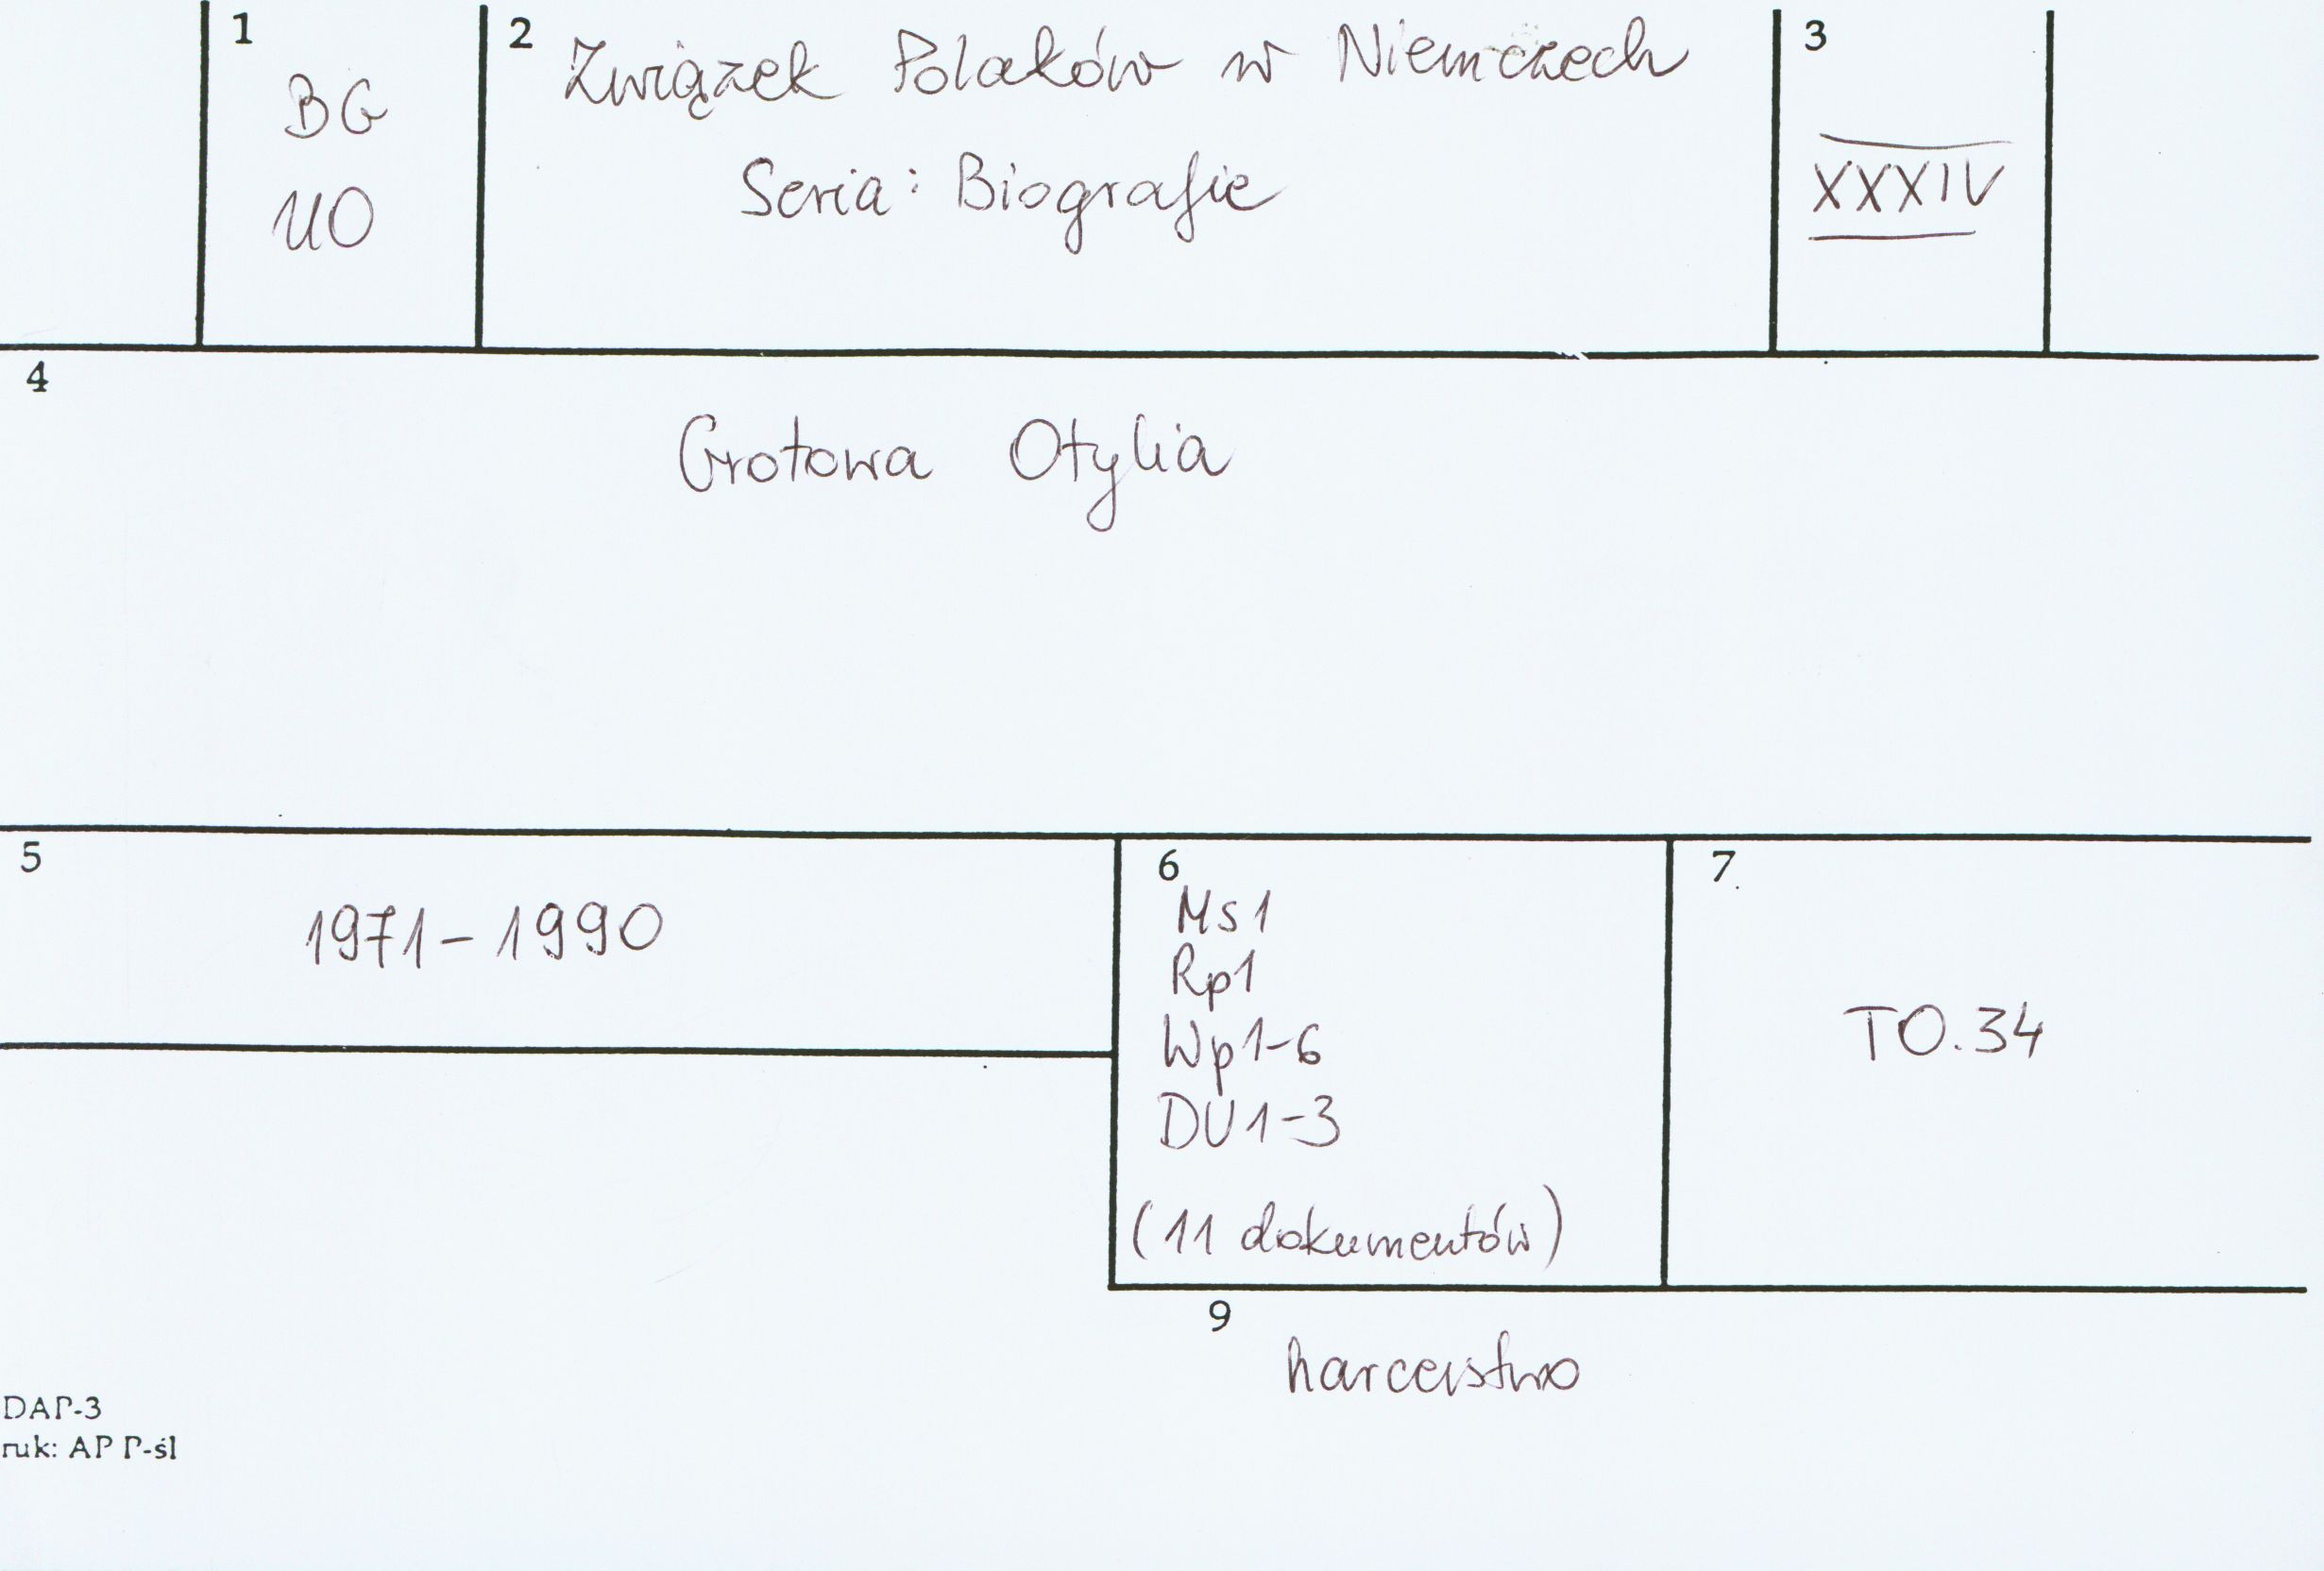 1
BG
UO
2
Związek Polaków w Niemczech
Seria: Biografie
3
XXXIV
4
Grotowa Otylia
5
1971-1990
6
Ms1
Rp1
Wp1-6
DU1-3
(11 dokumentów)
7
TO.34
9
harcerstwo
DAP-3
ruk: AP P-śl